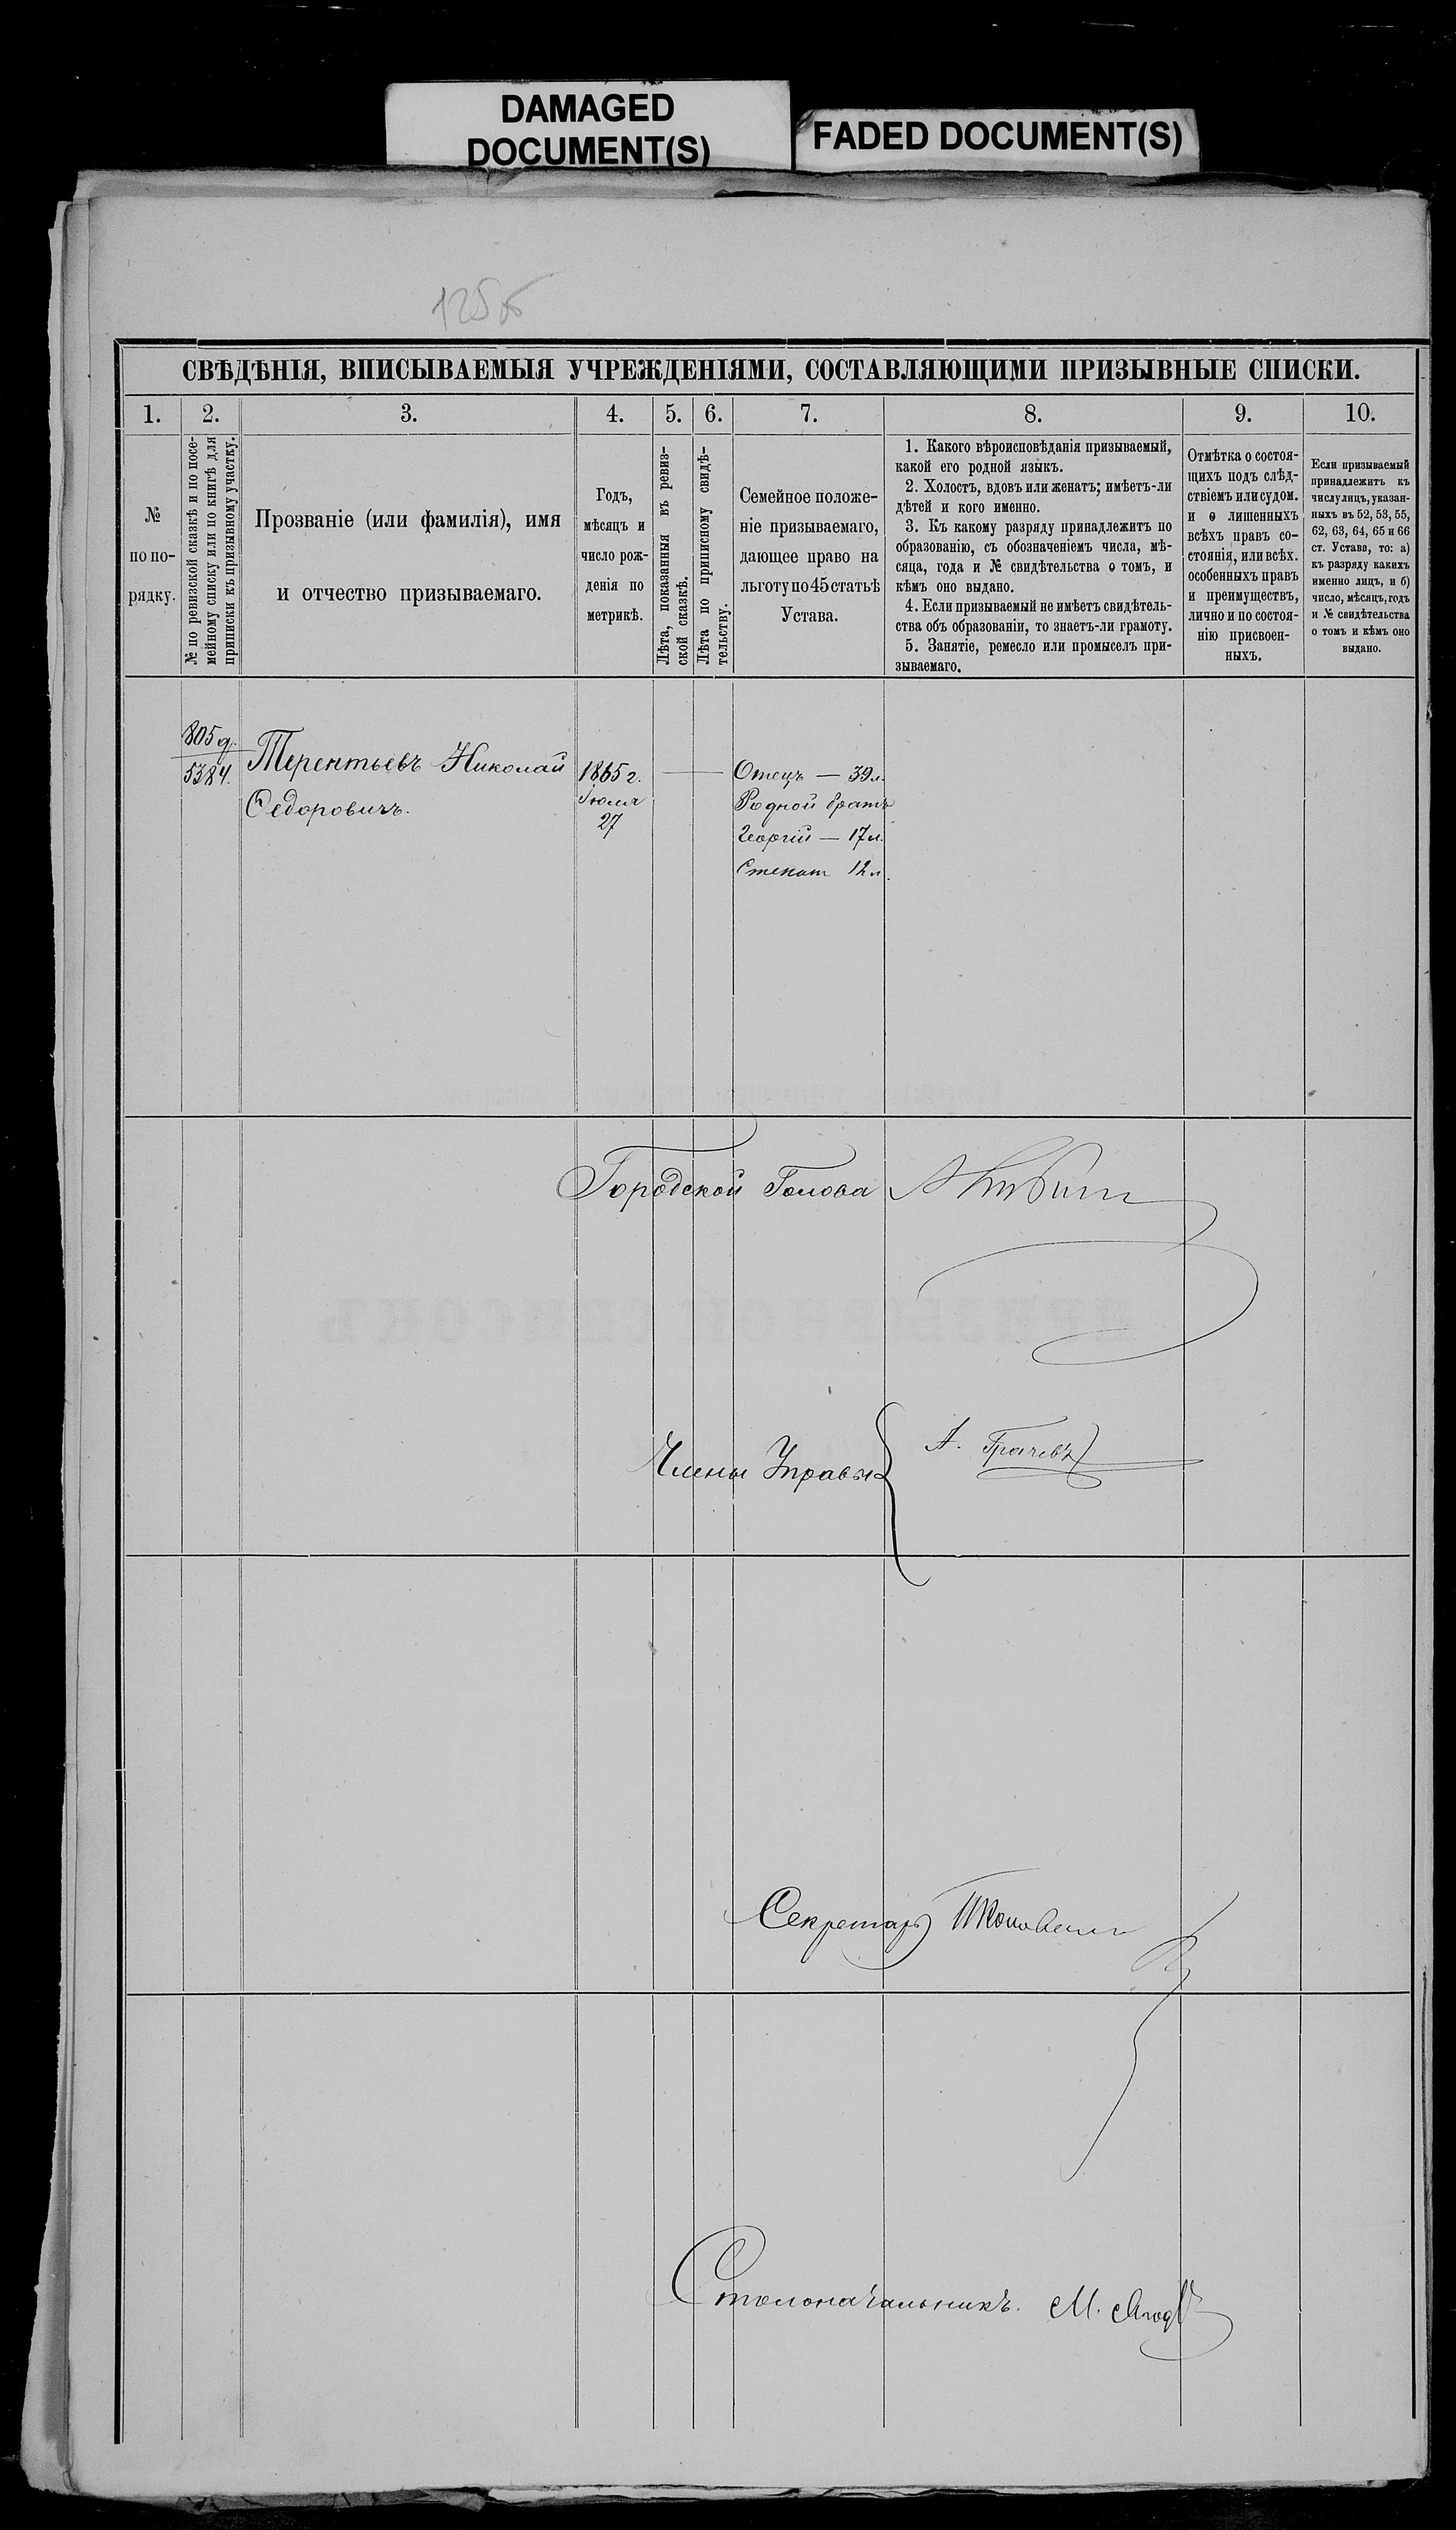 DAMAGED
DOCUMENT(S)
FADED DOCUMENT(S)
125
СВѢДѢНІЯ, ВПИСЫВАЕМЫЯ УЧРЕЖДЕНІЯМИ, СОСТАВЛЯЮЩИМИ ПРИЗЫВНЫЕ СПИСКИ.
1. 2. 3. 4. 5. 6. 7. 8. 9. 10.
№
по по-
рядку.
№ по ревизской сказкѣ и по посе-
мейному списку или по книгѣ для
приписки къ призывному участку.
Прозваніе (или фамилія), имя
и отчество призываемаго.
Годъ,
мѣсяцъ и
число рож-
денія по
метрикѣ.
Лѣта, показанныя въ ревиз-
ской сказкѣ.
Лѣта по приписному свидѣ-
тельству.
Семейное положе-
ніе призываемаго,
дающее право на
льготу по 45 статьѣ
Устава.
1. Какого вѣроисповѣданія призываемый,
какой его родной языкъ.
2. Холостъ, вдовъ или женатъ; имѣетъ-ли
дѣтей и кого именно.
3. Къ какому разряду принадлежитъ по
образованію, съ обозначеніемъ числа, мѣ-
сяца, года и № свидѣтельства о томъ, и
кѣмъ оно выдано.
4. Если призываемый не имѣетъ свидѣтель-
ства объ образованіи, то знаетъ-ли грамоту.
5. Занятіе, ремесло или промыселъ при-
зываемаго.
Отмѣтка о состоя-
щихъ подъ слѣд-
ствіемъ или судом.
и о лишенныхъ
всѣхъ правъ со-
стоянія, или всѣх.
особенныхъ правъ
и преимуществъ,
лично и по состоя-
нію присвоен-
ныхъ.
Если призываемый
принадлежитъ къ
числу лицъ, указан-
ныхъ въ 52, 53, 55,
62, 63, 64, 65 и 66
ст. Устава, то: а)
къ разряду какихъ
именно лицъ, и б)
число, мѣсяцъ, годъ
и № свидѣтельства
о томъ и кѣмъ оно
выдано.
805 д.
5384.
Терентьевъ Николай
Ѳедоровичъ.
1865 г.
Іюля
27
Отецъ — 39 л.
Родной братъ
Георгій — 17 л.
Степан 12 л.
Городской Голова
Члены Управы
А. Грачевъ
Секретарь
Столоначальникъ. М.